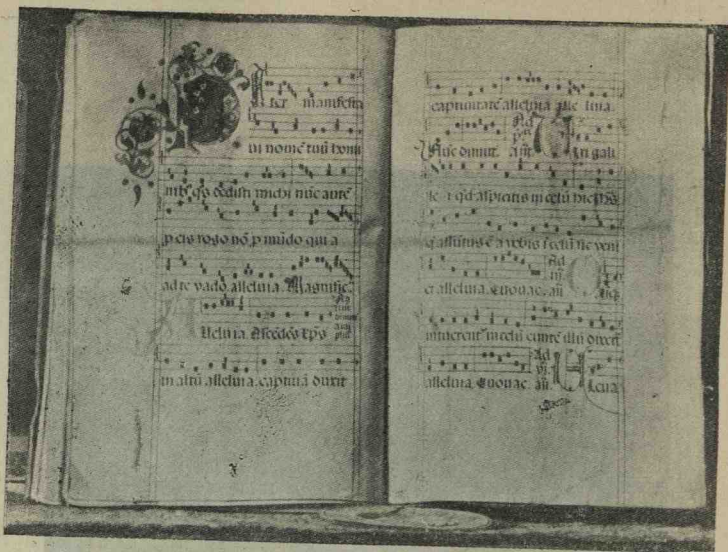 ater manifesta
vi nomē tuū homi
nib; q̄s dedisti michi nūc autē
p eis rogo nō p mūdo qui a
ad te vado alleluia. Magnific.
lleluia. Ascēdēs xp̄s
in altū alleluia. captivā duxit
captivitatē alleluia alleluia.
Nūc dimitt. añ. In gali
le i qd aspicitis in celū hic
q assūtus ē a vobis ī celū sic veni
et alleluia. Euouae. añ
intuerent in celū eūtē illū dixerūt
alleluia. Euouae. añ. Leva